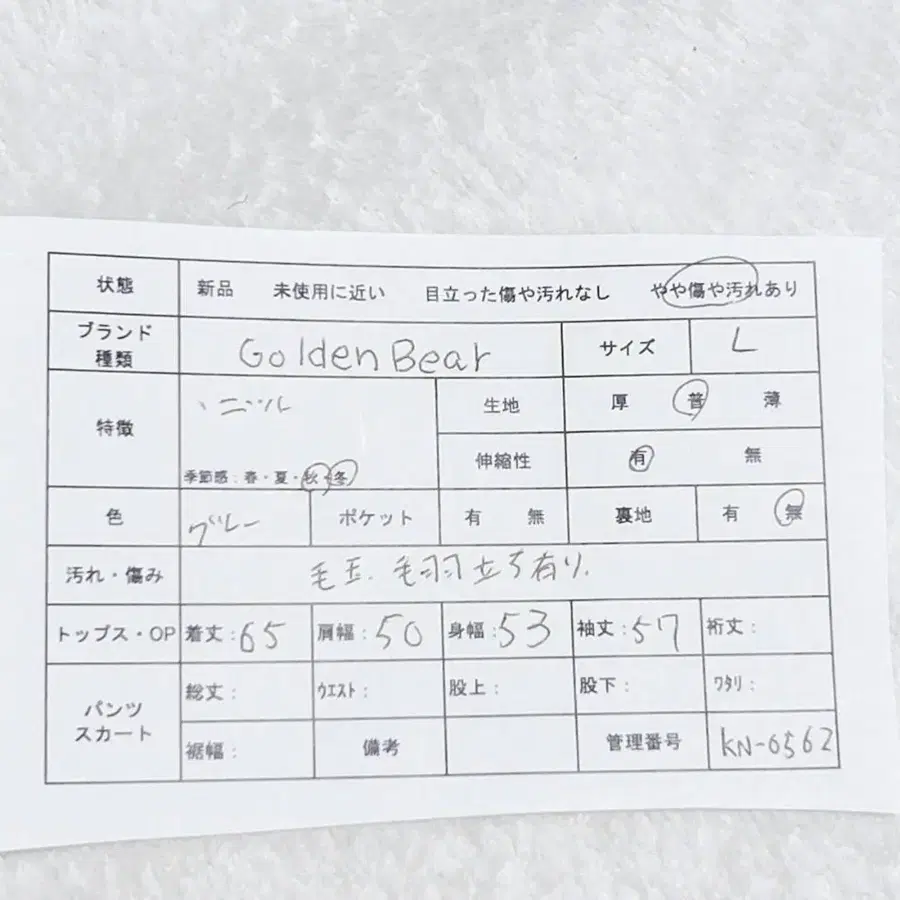 状態 新品 未使用に近い 目立った傷や汚れなし やや傷や汚れあり
ブランド
種類
Golden Bear サイズ L
特徴 生地 厚 普 薄
伸縮性 有 無
季節感:春・夏・秋・冬
色 グレー ポケット 有 無 裏地 有 無
汚れ・傷み 毛玉、毛羽立ち有り、
トップス・OP 着丈:65 肩幅:50 身幅:53 袖丈:57 裄丈:
パンツ
スカート
総丈: ウエスト: 股上: 股下: ワタリ:
裾幅: 備考 管理番号 KN-6562